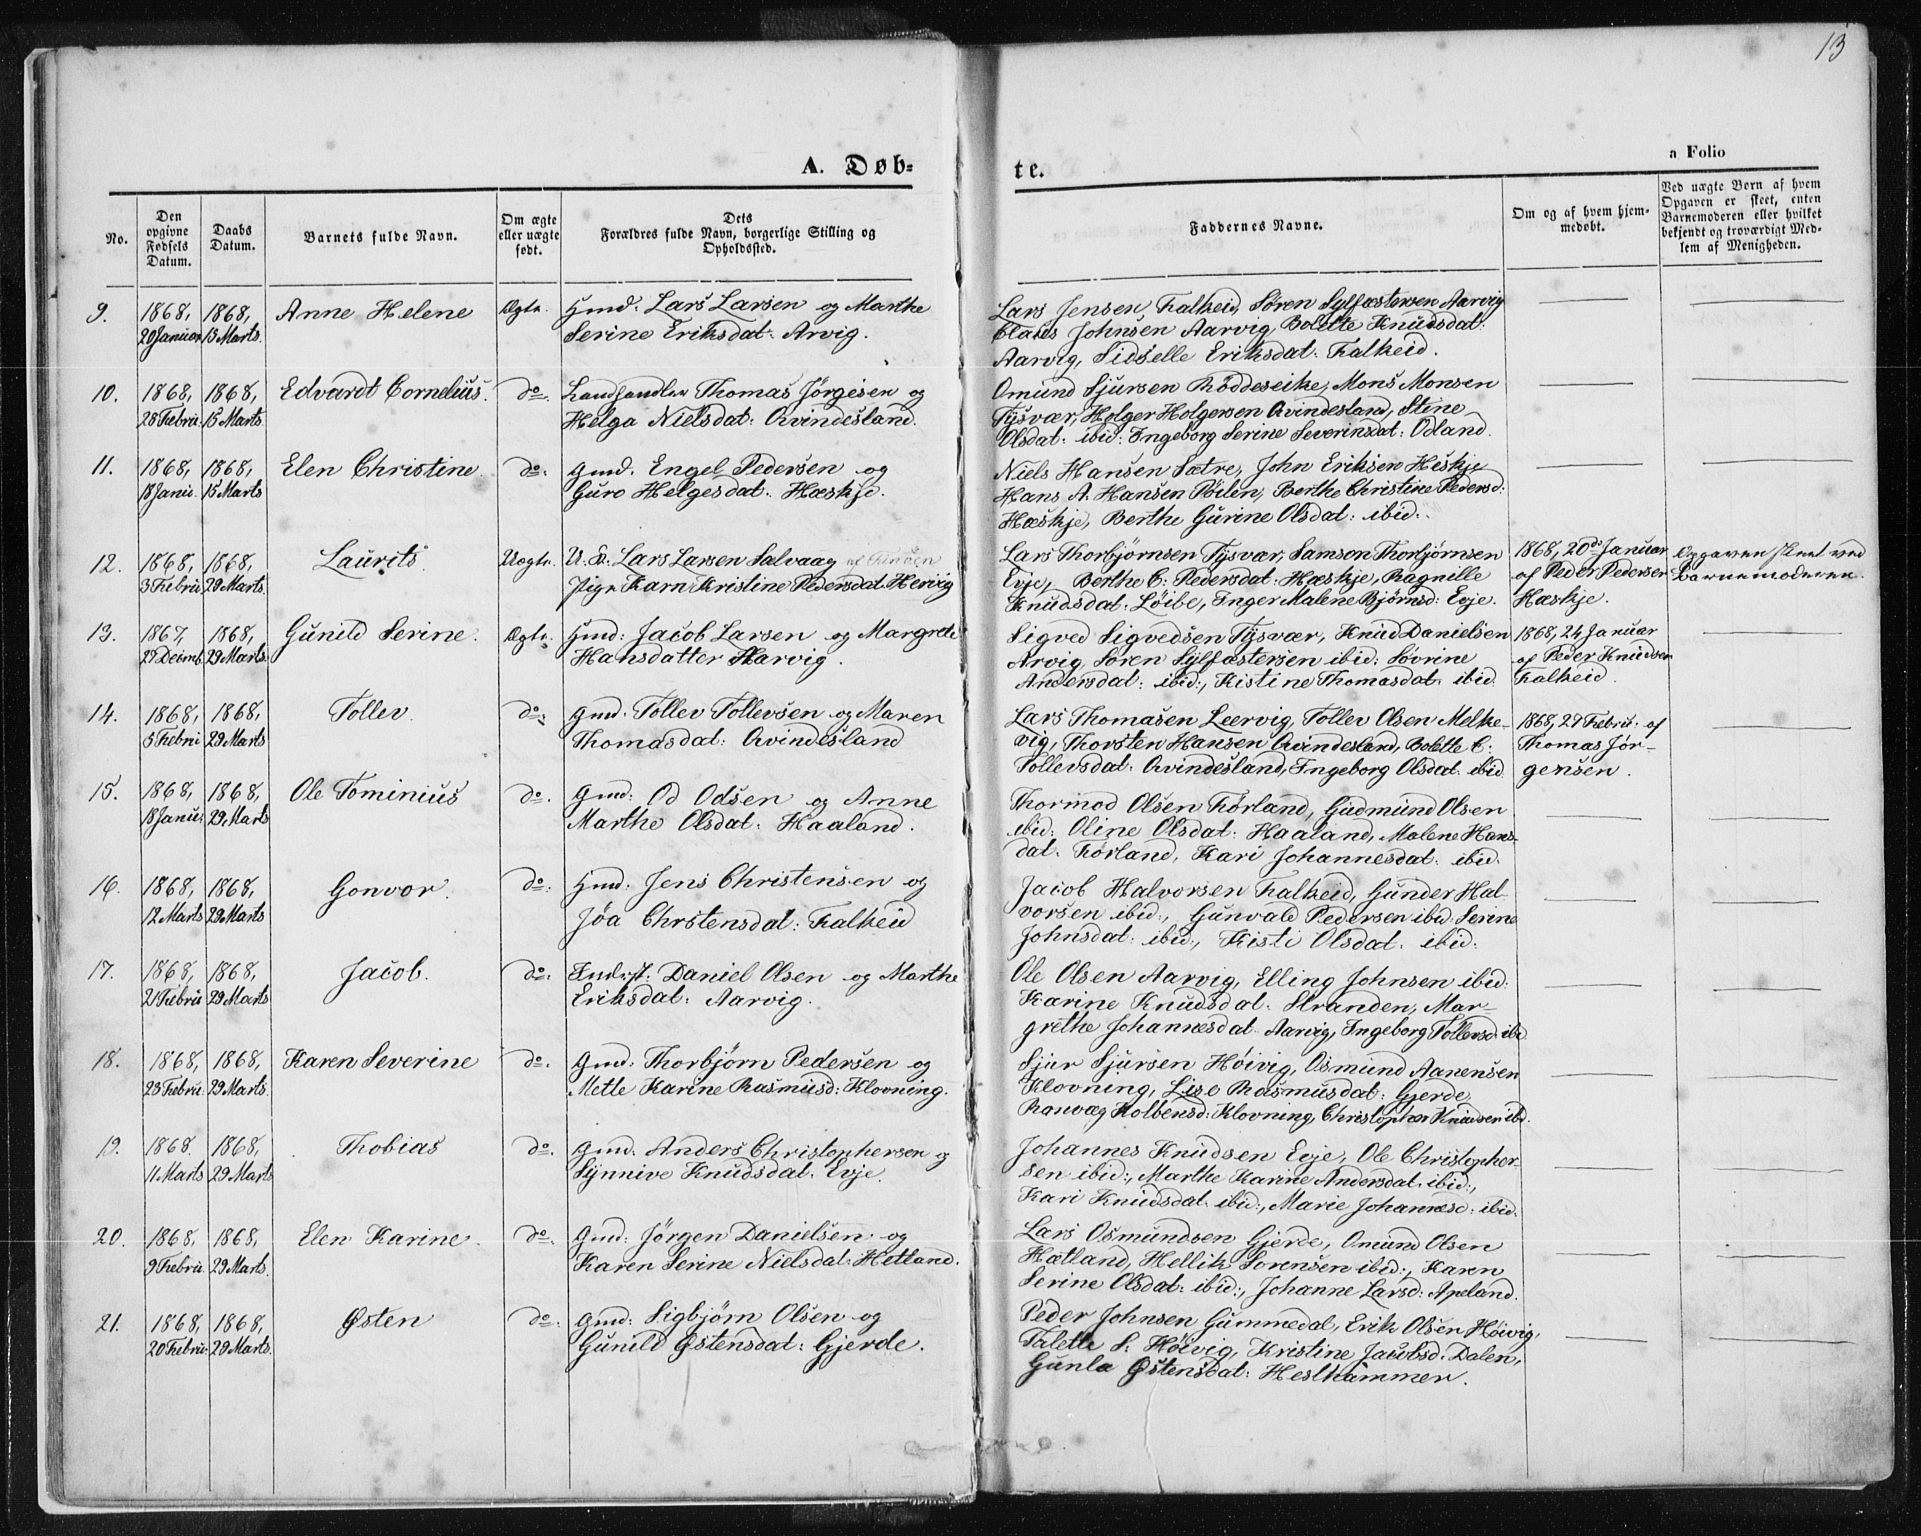 13
a Folio
A. Døb-
te.
No.
Den opgivne Fødsels Datum.
Daabs Datum.
Barnets fulde Navn.
Om ægte eller uægte født.
Dets Forældres fulde Navn, borgerlige Stilling og Opholdssted.
Faddernes Navne.
Om og af hvem hjemmedøbt.
Ved uægte Børn af hvem Opgaven er skeet, enten Barnemoderen eller hvilket bekjendt og troværdigt Medlem af Menigheden.
9. 1868, 1868, Anne Helene Ægte. Gmd: Lars Larsen og Marthe
20 Januar 15 Marts. Serine Eriksdat: Arvig.
Lars Jensen Falkeid, Søren Sylfæstersen Aarvig
Claus Johnsen Aarvig, Bolette Knudsdat:
Aarvig, Sidselle Eriksdat: Falkeid.
10. 1868, 1868, Edvardt Cornelius. do. Landhandler Thomas Jørgesen og
28 Febru: 15 Marts Helga Nielsdat: Qvindesland.
Omund Sjursen Røddeseike, Mons Monsen
Tysvær, Holger Holgersen Qvindesland, Stine
Olsdat: ibid: Ingeborg Serine Severinsdat: Odland.
11. 1868, 1868, Elen Christine do: Gmd. Engel Pedersen og
18 Janu. 15 Marts Guro Helgesdat: Hæskje.
Niels Hansen Sætre, John Eriksen Heskje
Hans A. Hansen Pøilen, Berthe Christine Pedersd:
Hæskje, Berthe Gurine Olsdat: ibid:
12. 1868, 1868, Laurits Uægte. U. K. Lars Larsen Salvaag
3 Febru 29 Marts. Pige Karn Kristine Pedersdat. Hervig
Lars Thorbjørnsen Tysvær, Samson Thorbjørnsen
Evje, Berthe C: Pedersdat: Hæskje, Ragnille
Knudsdat: Løibe, Inger Malene Bjørnsd: Evje.
1868, 20de Januar
af Peder Pedersen
Hæskje.
Opgaven skeet ved
Barnemoderen.
13. 1867, 1868, Gunild Serine. Ægte. Gmd: Jacob Larsen og Margrete
27 Decmb. 29 Marts. Hansdatter Aarvig.
Sigved Sigvedsen Tysvær, Knud Danielsen
Arvig, Søren Sylfæstersen ibid: Søvrine
Andersdat: ibid:, Kistine Thomasdat: ibid.
1868, 24 Januar
af Peder Knudsen
Falkeid.
14. 1868, 1868, Tollev. do: Gmd: Tollev Tollevsen og Maren
5 Febru 29 Marts Thomasdat: Qvindesland
Lars Thomasen Leervig, Tollev Olsen Melke-
vig, Thorsten Hansen Qvindesland, Bolette C:
Tollevsdat: Qvindesland, Ingeborg Olsdat: ibid.
1868, 27 Febru: af
Thomas Jør-
gensen.
15. 1868, 1868, Ole Tominius do: Gmd: Od Odsen og Anne
18 Janu: 29 Marts Marthe Olsdat: Haaland.
Thormod Olsen Førland, Gudmund Olsen
ibid: Oline Olsdat: Haaland, Malene Hans-
dat: Førland, Kari Johannesdat: ibid.
16. 1868, 1868, Gonvor. do: Gmd: Jens Christensen og
12 Marts 29 Marts Jøa Chrstensdat: Falkeid
Jacob Halvorsen Falkeid, Gunder Hal-
vorsen ibid:, Gunvald Pedersen ibid: Serine
Johnsdat: ibid:, Kisti Olsdat: ibid:
17. 1868, 1868, Jacob. do: Inderst: Daniel Olsen og Marthe
21 Febru 29 Marts Eriksdat: Aarvig.
Ole Olsen Aarvig, Elling Johnsen ibid:
Karine Knudsdat: Stranden, Mar-
grethe Johannesdat: Aarvig, Ingeborg Tollevsd: ibd
18. 1868, 1868, Karen Severine do. Gmd: Thorbjørn Pedersen og
23 Febru. 29 Marts. Mette Karine Rasmusd: Klovning.
Sjur Sjursen Høivig, Osmund Aanensen
Klovning, Lise Rasmusdat: Gjerde,
Ranvæg Kolbensd: Klovning, Christopher Knudsen ibd.
19. 1868. 1868, Thobias do. Gmd: Anders Christophersen og
11 Marts 29 Marts Synnive Knudsdat: Evje.
Johannes Knudsen Evje, Ole Christopher-
sen ibid:, Marthe Karine Andersdat: ibid:,
Kari Knudsdat: ibid:, Marie Johannesd: ibid:
20. 1868, 1868, Elen Karine. do. Gmd: Jørgen Danielsen og
9 Febru. 29 Marts. Karen Serine Nielsdat: Hetland.
Lars Osmundsen Gjerde, Omund Olsen
Hætland, Hellik Sorensen ibid:, Karen
Serine Olsdat: ibid:, Johanne Larsd: Apeland.
21. 1868, 1868, Østen do: Gmd: Sigbjørn Olsen og
20 Febru 29 Marts. Gunild Østensdat: Gjerde.
Peder Johnsen Gummedal, Erik Olsen Høivig,
Talette S: Høivig, Kristine Jacobsd. Dalen,
Gunla Østensdat: Heslhammer.